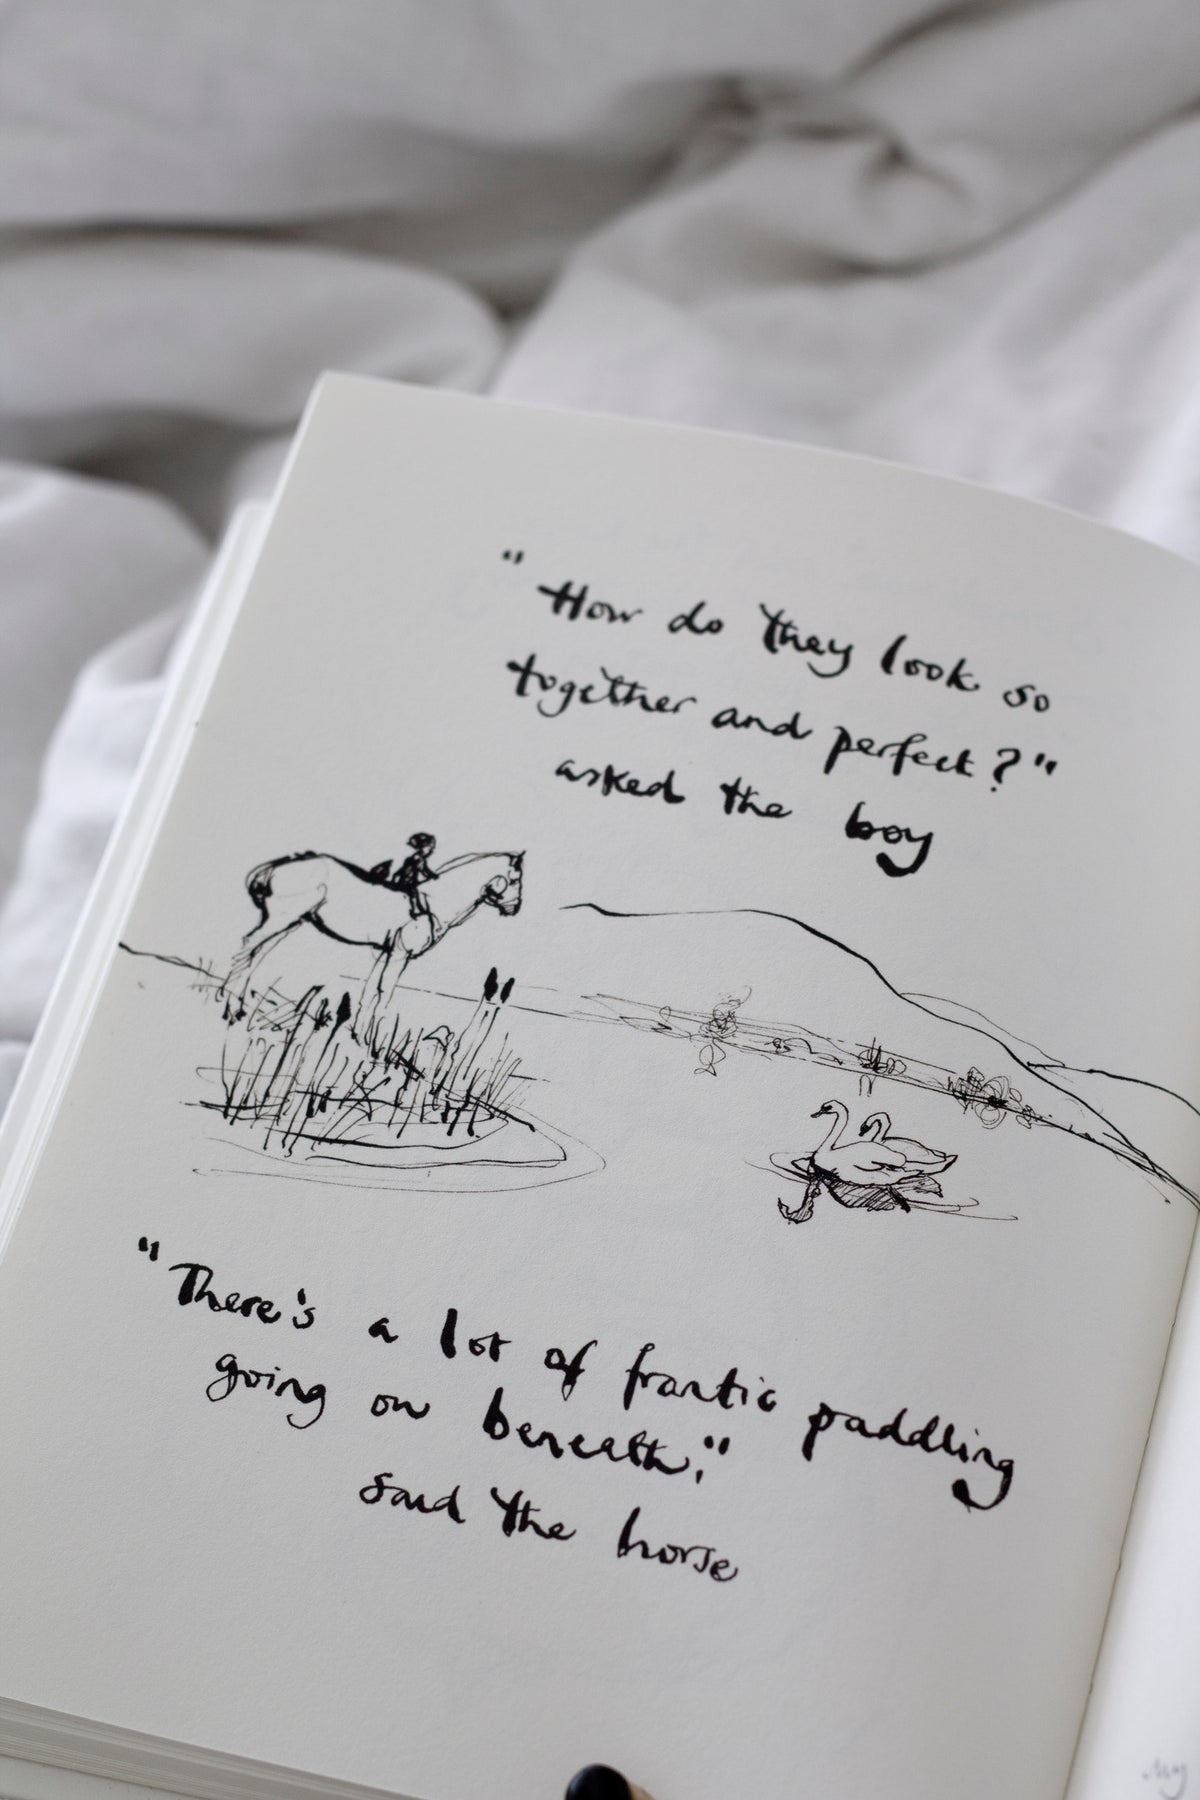 "How do they look so
together and perfect?"
asked the boy
"There's a lot of frantic paddling
going on beneath."
said the horse